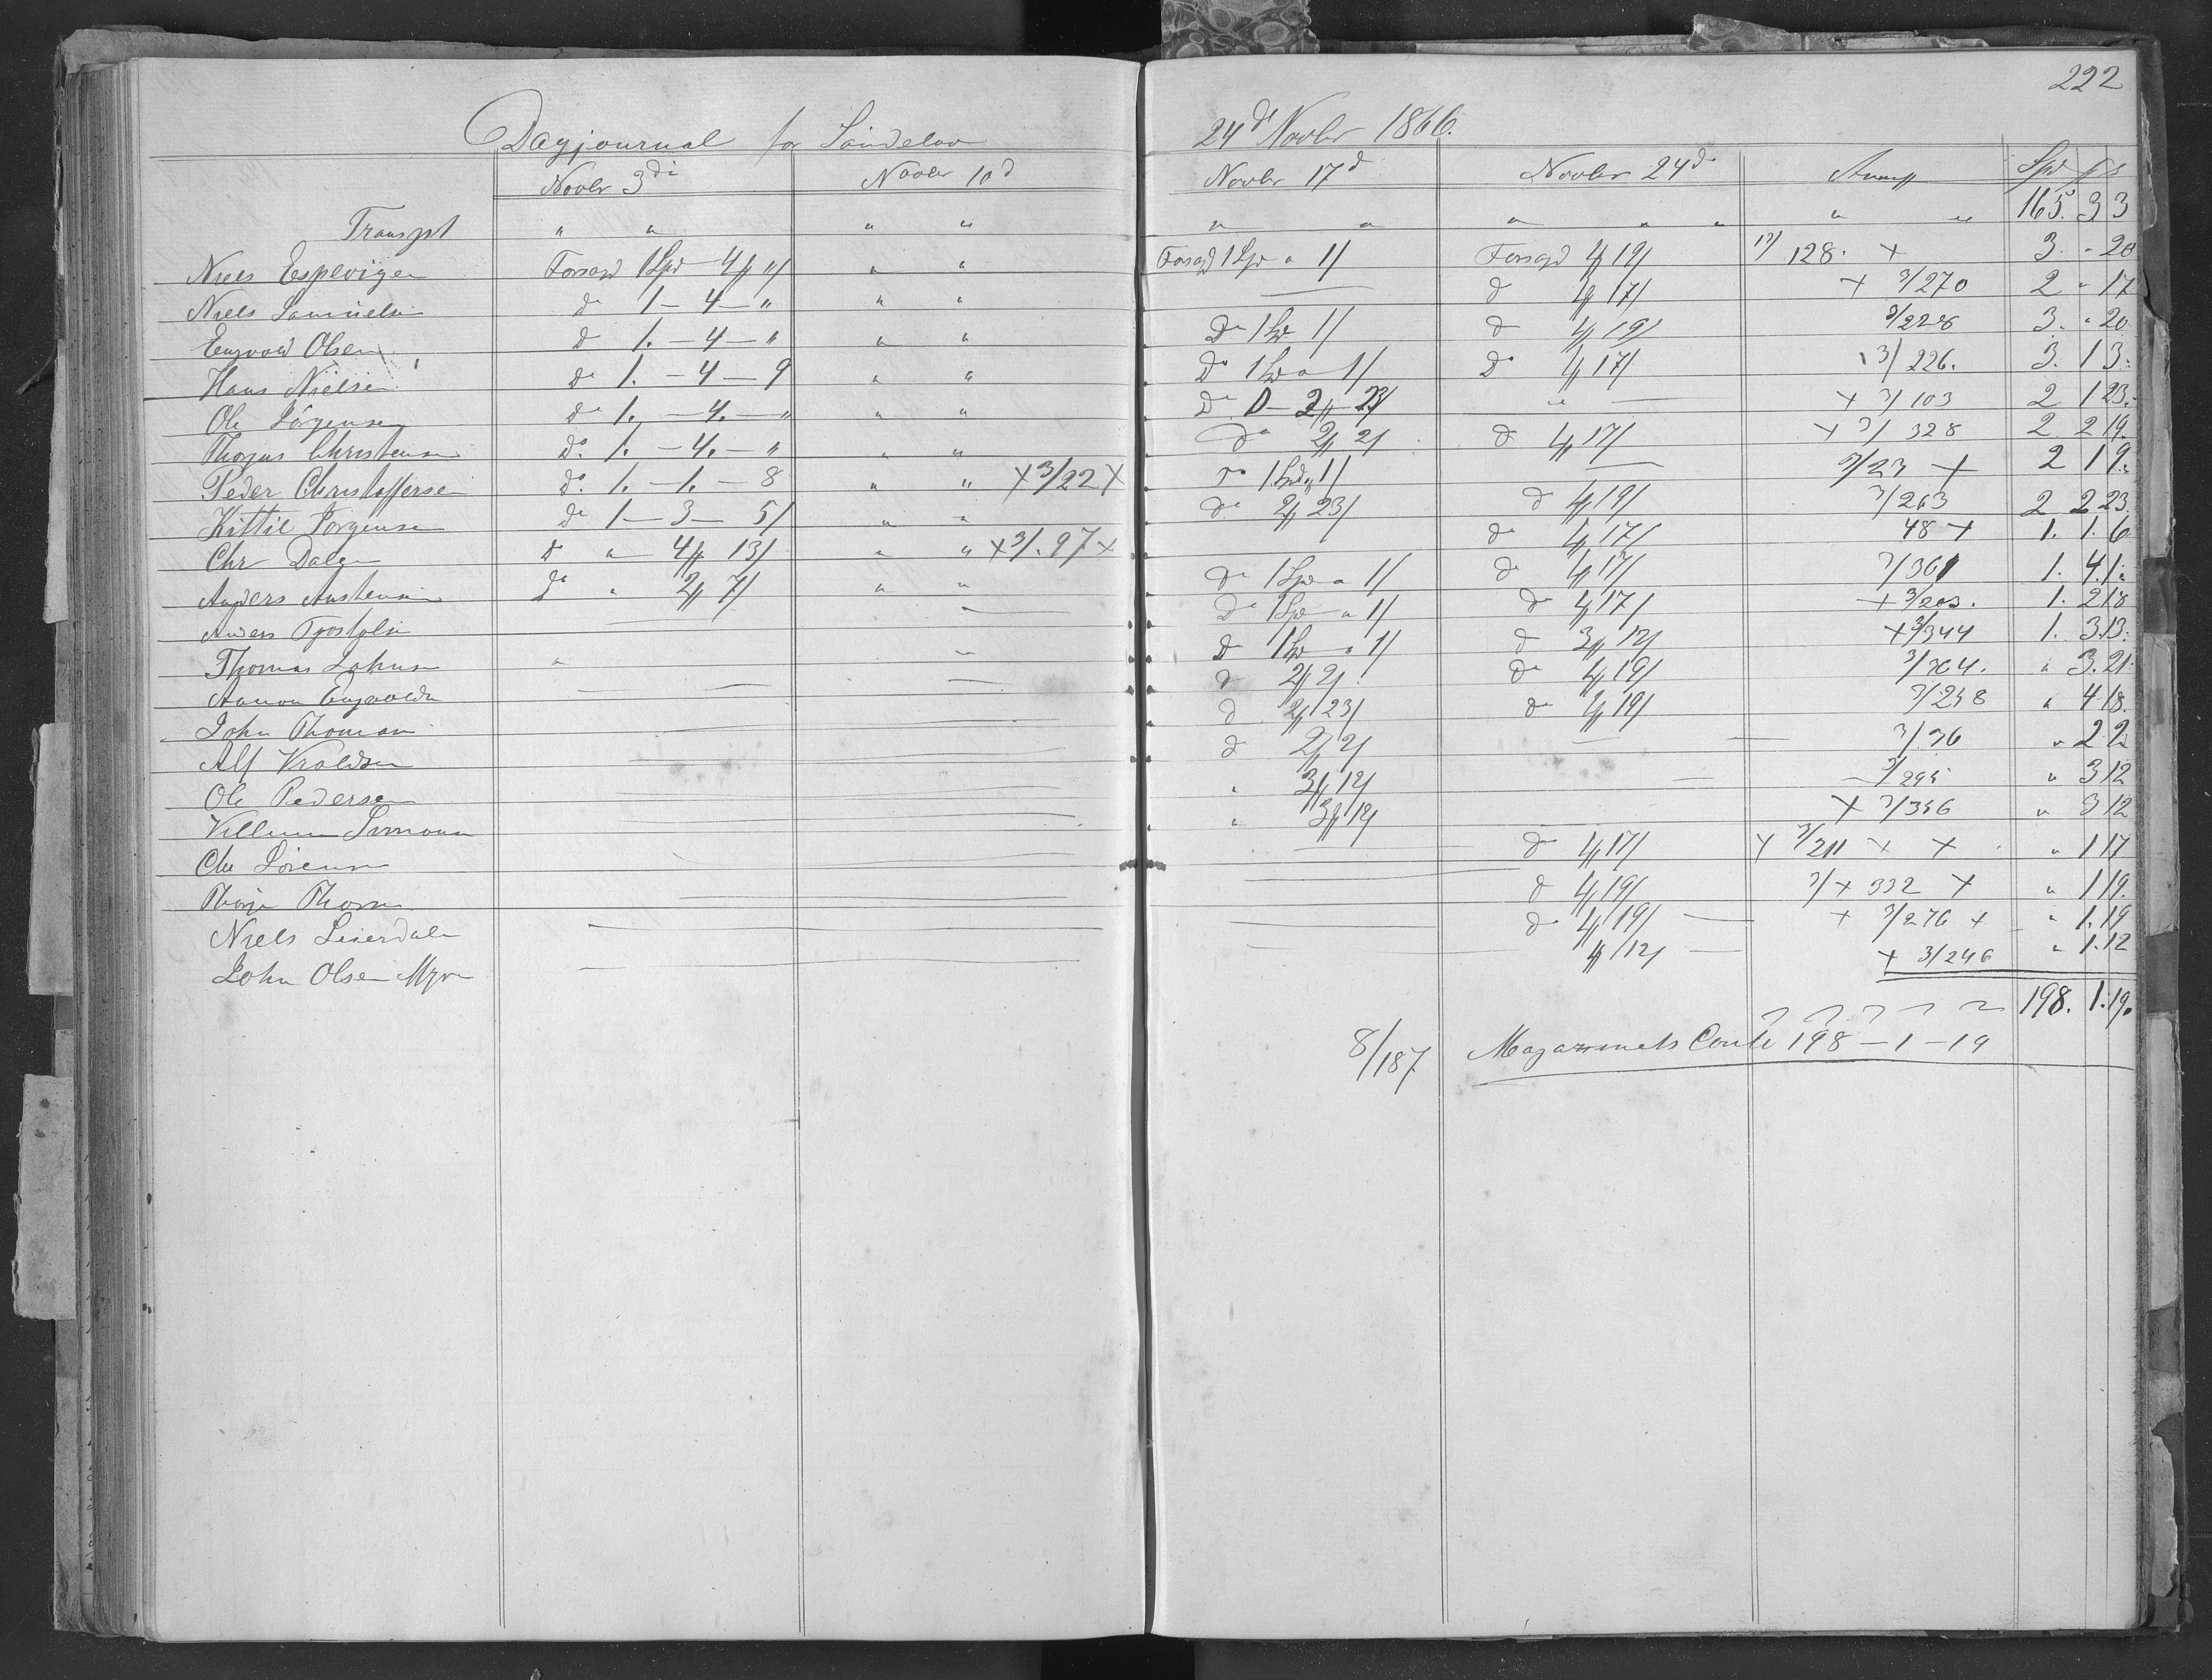 222
Dagjournal for 24d Novbr 1866.
Novbr 3di Novbr 10d Novbr 17d Novbr 24d Spd
Transpt " " " " " " " " " " " 165. 3 3
Niels Espevigen Forsagd 1 Spd 4 " " " Forsagd 1 Spd " 1/ Forsagd 19/ 128. + 3. " 20
Niels Samuelsen do 1 — 4 — " " " — d 17/ + 3/270 2 " 17
Engvold Olsen d 1. — 4 — " " " Do 1 Spd 1/ d 19/ 3/228 3. " 20
Hans Nielsen do 1. — 4 — 9 " " Do 1 Spd " 1/ Do 17/ 3/226. 3. 1 3.
Ole Jörgensen do 1. — 4. — " " " Do 2 23/ " — + 3/103 2 1 23.
Christensen do. 1. — 4. — " " " do 2 2/ d 17/ + 3/328 2 2 19.
Peder Christoffersen do. 1. — 1. — 8 " " +3/22+ do 1 Spd " 1/ — 3/23 + 2 1 9.
Kittil Jorgensen do 1 — 3 — 5/ " " do 2 23/ d 19/ 3/263 2 2 23.
Chr Dalen do " — 4 13/ " " +3/.97+ do 17/ 48 + 1. 1. 6
Anders Austensen do " 2 7/ " " do 1 Spd " 1/ do 17/ 3/361 1. 4. 1.
— — Do 1 Spd " 1/ do 17/ + 3/203. 1. 2 18
Thomas Johnsen " " D 1 Spd " 1/ d 3 12/ +3/344 1. 3. 13.
Aanon Engvoldsen — — — d 2 2/ do 19/ 3/304. " 3. 21.
John Thomasen — d 2 23/ do 19/ 3/258 " 4 18.
Alf — d 2 2/ — — 3/36 " 2 2
Ole Pedersen — " 3 12/ — 3/295 " 3 12
Villum Simonsen — " 3 12/ + 3/356 " 3 12
Chr Sörensen — — do 17/ + 3/211 + + " 1 17
— — d 19/ 3/+ 332 + " 1 19.
Niels — — do 19/ — + 3/276 + " 1. 19
John Olsen Myra — — 12/ — + 3/246 " 1. 12
198. 1. 19.
8/187 Magazinets Conto 198 — 1 — 19